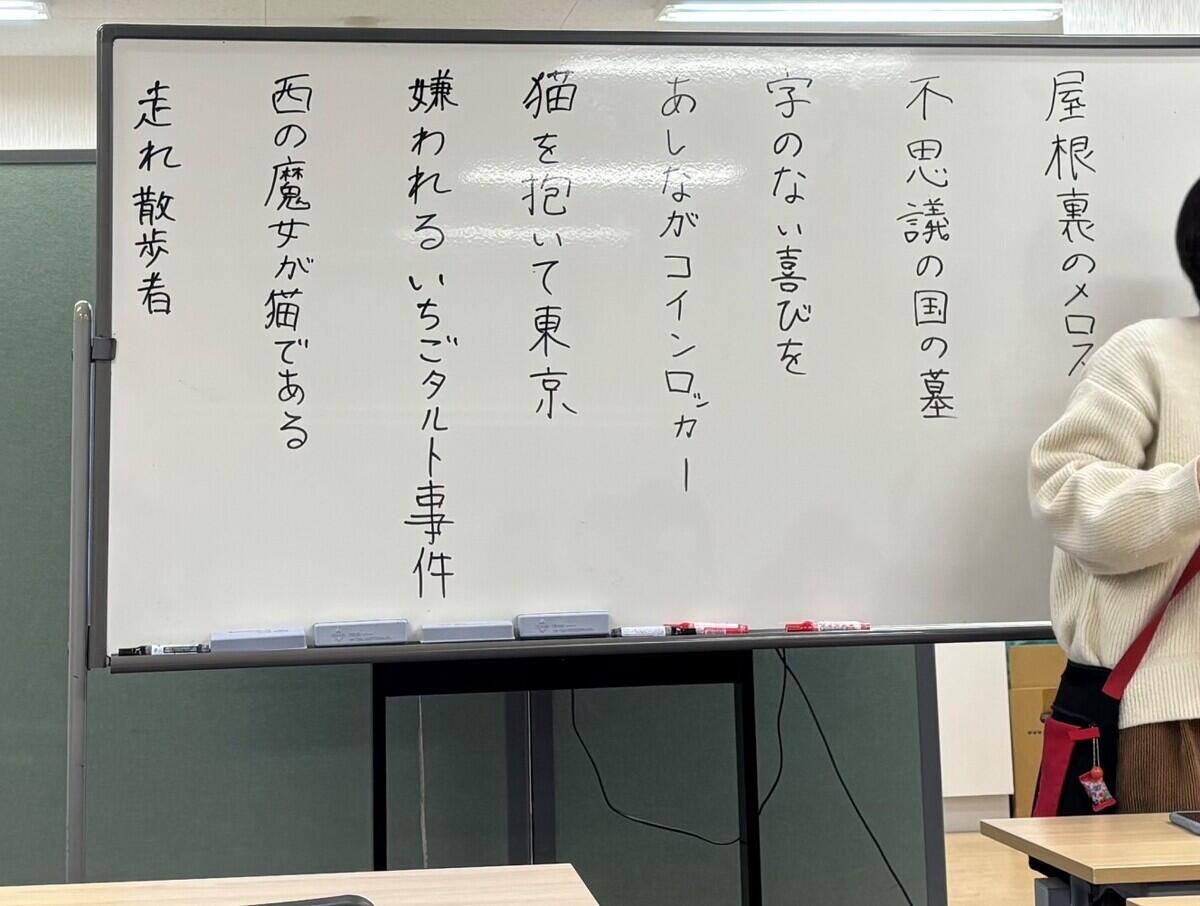 屋根裏のメロス
不思議の国の墓
字のない喜びを
あしながコインロッカー
猫を抱いて東京
嫌われるいちごタルト事件
西の魔女が猫である
走れ散歩者